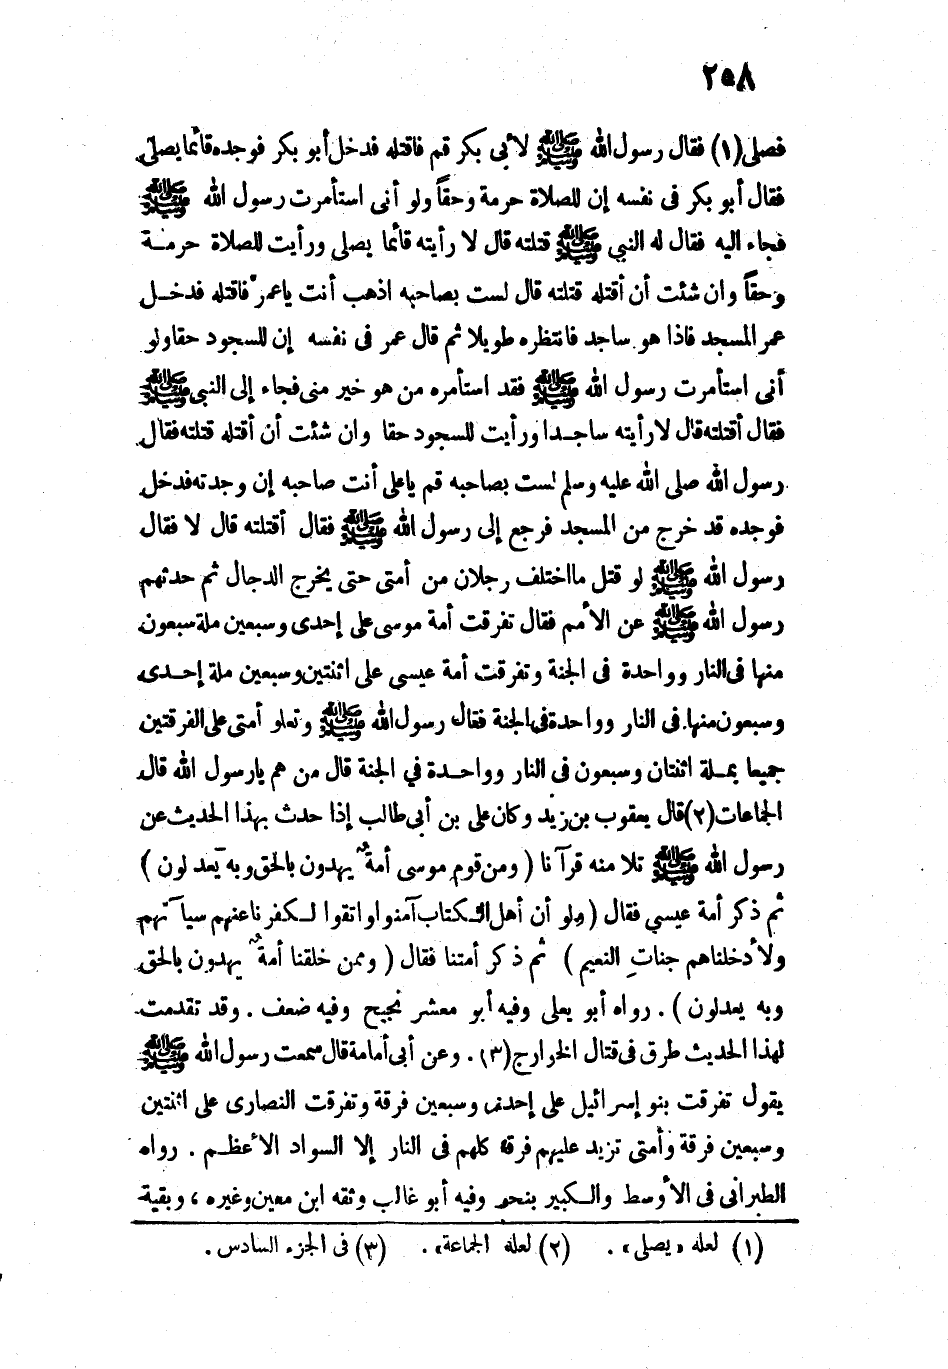 ٢٥٨
فصلى (١) فقال رسول الله ﷺ لأبى بكر قم فاقتله فدخل أبو بكر فوجده قائما يصلى
فقال أبو بكر فى نفسه إن للصلاة حرمة وحقاً ولو أنى استأمرت رسول الله ﷺ
فجاء اليه فقال له النبي ﷺ قتلته قال لا رأيته قائما يصلى ورأيت للصلاة حرمة
وحقاً وان شئت أن أقتله قتلته قال لست بصاحبه اذهب أنت ياعمر فاقتله فدخل
عمر المسجد فاذا هو ساجد فانتظره طويلا ثم قال عمر فى نفسه إن للسجود حقا ولو
أنى استأمرت رسول الله ﷺ فقد استأمره من هو خير منى فجاء إلى النبى ﷺ
فقال أقتلته قال لا رأيته ساجدا ورأيت للسجود حقا وان شئت أن أقتله قتلته فقال
رسول الله صلى الله عليه وسلم لست بصاحبه قم ياعلى أنت صاحبه إن وجدته فدخل
فوجده قد خرج من المسجد فرجع إلى رسول الله ﷺ فقال أقتلته قال لا فقال
رسول الله ﷺ لو قتل مااختلف رجلان من أمتى حتى يخرج الدجال ثم حدثهم
رسول الله ﷺ عن الأمم فقال تفرقت أمة موسى على إحدى وسبعين ملة سبعون
منها فى النار وواحدة فى الجنة وتفرقت أمة عيسى على اثنتين وسبعين ملة إحدى
وسبعون منها فى النار وواحدة فى الجنة فقال رسول الله ﷺ وتعلو أمتى على الفرقتين
جميعا بملة اثنتان وسبعون فى النار وواحدة في الجنة قال من هم يارسول الله قال
الجماعات (٢) قال يعقوب بن زيد وكان على بن أبى طالب إذا حدث بهذا الحديث عن
رسول الله ﷺ تلا منه قرآنا ( ومن قوم موسى أمةٌ يهدون بالحق وبه يعدلون )
ثم ذكر أمة عيسى فقال ( ولو أن أهل الكتاب آمنوا واتقوا لكفرنا عنهم سيآتهم
ولأدخلناهم جناتِ النعيم ) ثم ذكر أمتنا فقال ( وممن خلقنا أمةٌ يهدون بالحق
وبه يعدلون ) . رواه أبو يعلى وفيه أبو معشر نجيح وفيه ضعف . وقد تقدمت
لهذا الحديث طرق فى قتال الخوارج (٣) . وعن أبى أمامة قال سمعت رسول الله ﷺ
يقول تفرقت بنو إسرائيل على إحدى وسبعين فرقة وتفرقت النصارى على اثنتين
وسبعين فرقة وأمتى تزيد عليهم فرقة كلهم فى النار إلا السواد الأعظم . رواه
الطبرانى فى الأوسط والكبير بنحوه وفيه أبو غالب وثقه ابن معين وغيره ، وبقية
(١) لعله «يصلى» . (٢) لعله الجماعة» . (٣) فى الجزء السادس .